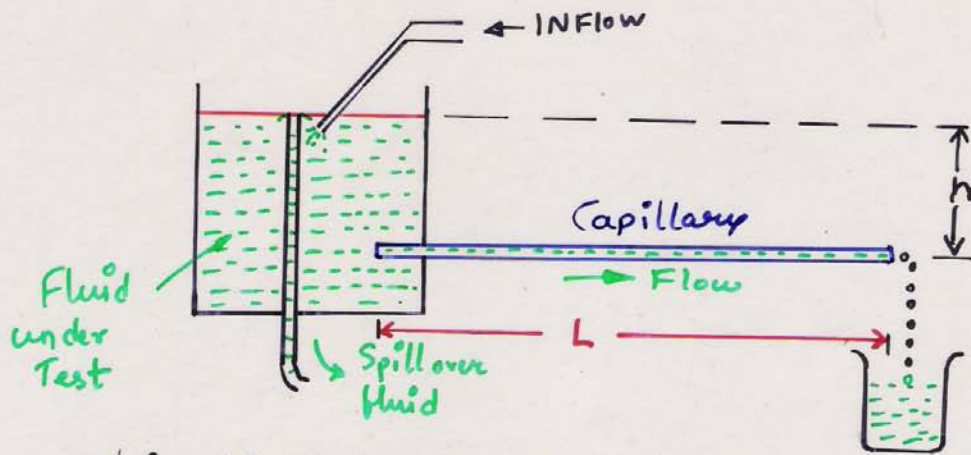 INFlow
h
Capillary
Flow
Fluid
under
Test
L
Spill over
fluid